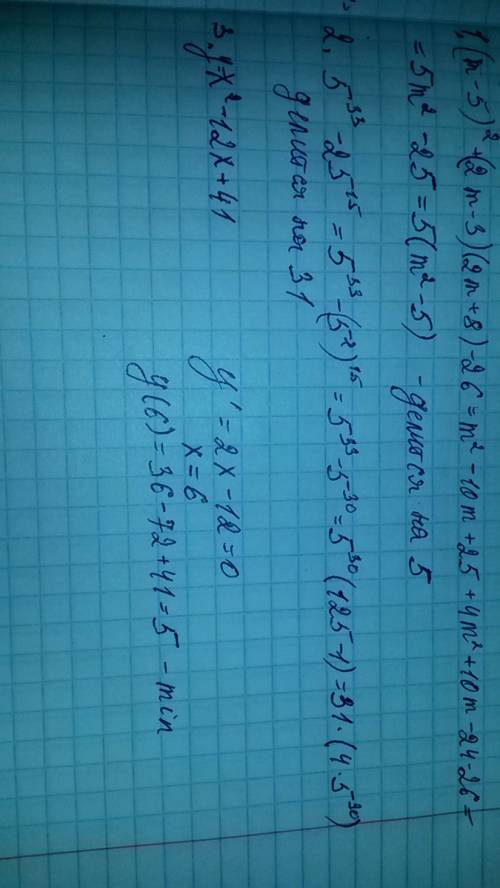 1. (m-5)² + (2m-3)(2m+8) - 26 = m² - 10m + 25 + 4m² + 10m - 24 - 26 =
= 5m² - 25 = 5(m² - 5) - делится на 5
2. 5³³ - 25¹⁵ = 5³³ - (5²)¹⁵ = 5³³ - 5³⁰ = 5³⁰(125 - 1) = 31·(4·5³⁰)
делится на 31
3. y = x² - 12x + 41
y' = 2x - 12 = 0
x = 6
y(6) = 36 - 72 + 41 = 5 - min